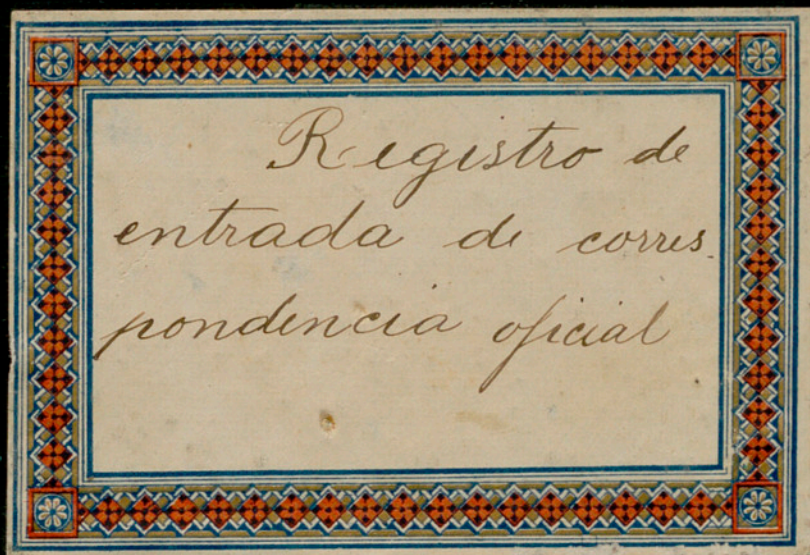 Registro de
entrada de corres-
pondencia oficial